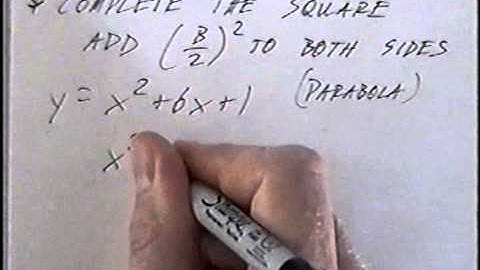 * COMPLETE THE SQUARE
ADD (B/2)² TO BOTH SIDES
y = x² + 6x + 1 (PARABOLA)
x
Sharpie